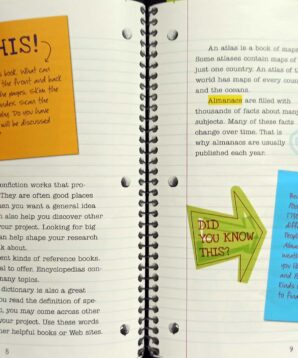 THIS!
book. What can
the front and back
the pages. Skim the
index. Scan the
Do you have
will be discussed
nonfiction works that pro-
They are often good places
hen you want a general idea
n also help you discover other
your project. Looking for big
an help shape your research
k about.
ent kinds of reference books.
al to offer. Encyclopedias con-
many topics.
dictionary is also a great
you read the definition of spe-
, you may come across other
your project. Use these words
her helpful books or Web sites.
8
An atlas is a book of maps
Some atlases contain maps of
just one country. An atlas of t
world has maps of every coun
and the oceans.
Almanacs are filled with
thousands of facts about many
subjects. Many of these facts
change over time. That is
why almanacs are usually
published each year.
DID
YOU KNOW
THIS?
diffe
Peop
Alma
weat
you li
and
Kinds
to fin
9